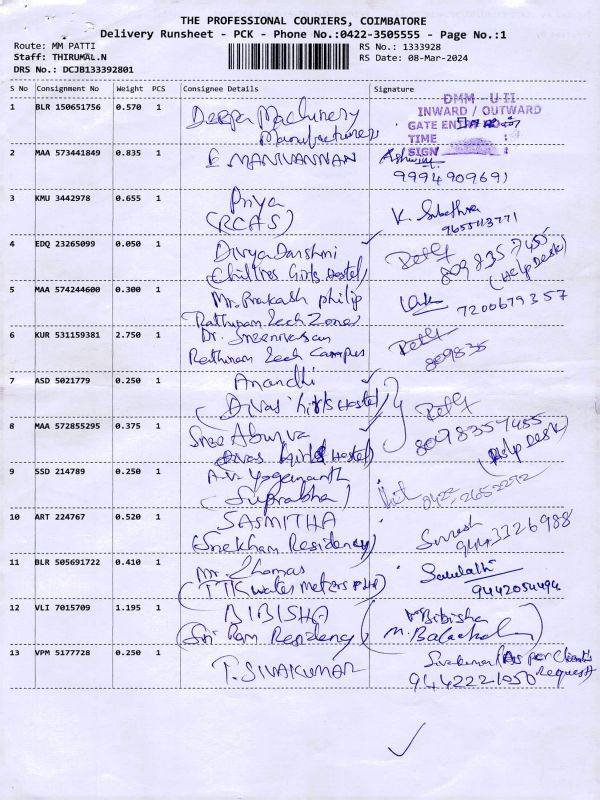 THE PROFESSIONAL COURIERS, COIMBATORE
Delivery Runsheet - PCK - Phone No.:0422-3505555 - Page No.:1
Route: MM PATTI
RS No.: 1333928
Staff: THIRUMAL.N
RS Date: 08-Mar-2024
DRS No.: DCJB133392801
S No Consignment No Weight PCS Consignee Details Signature
1 BLR 150651756 0.570 1 Deepa Machinery
Manufacturers
DMM - U II
INWARD / OUTWARD
GATE
TIME :
SIGN :
2 MAA 573441849 0.835 1 E. MANIVANNAN
9994909691
3 KMU 3442978 0.655 1 Priya
(RCAS)
K.
4 EDQ 23265099 0.050 1 Divya Darshni
(Chillies Girls Hostel)
8098357455
(Help Desk)
5 MAA 574244600 0.300 1 Mr. Prakash Philip
Rathinam Tech Zone
7200679357
6 KUR 531159381 2.750 1 Dr. Sreenivasan
Rathinam Tech Campus
809835
7 ASD 5021779 0.250 1 Anandhi
(Divas Girls Hostel)
8 MAA 572855295 0.375 1 Sree
Divas Girls Hostel)
8098357455
(Help Desk)
9 SSD 214789 0.250 1 A.V. Yogananth
(Suprabha)
0422-2652272
10 ART 224767 0.520 1 SASMITHA
(Snekham Residency)
Suresh
9443326988
11 BLR 505691722 0.410 1 Mr. Thomas
(TTK Water Meters P Ltd)
9442054494
12 VLI 7015709 1.195 1 BIBISHA
(Sri Ram Residency)
Bibisha
13 VPM 5177728 0.250 1 T. SIVAKUMAR
Sivakumar (As per Client's
Request)
9442221050